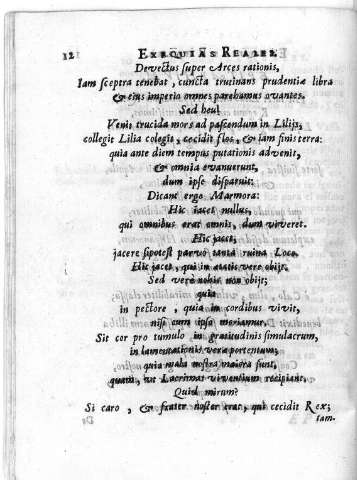 12 EXEQUIAS REALES
Devectus super Arces rationis,
Iam sceptra tenebat, cuncta trutinans prudentiæ libra
& eius imperio omnes parebamus ovantes.
Sed heu!
Venit trucida mors ad pascendum in Lilijs,
collegit Lilia colegit, cecidit flos, & iam finis terra:
quia ante diem tempus putationis advenit,
& omnia evanuerunt,
dum ipse disparuit:
Dicant ergo Marmora:
Hic iacet nullus,
qui omnibus erat omnis, dum viveret.
Hic jacet;
jacere si potest parvo tanta ruina Loco.
Hic jacet, qui in ætatis vere obijt.
Sed vere nobis non obijt;
quia
in pectore, quia in cordibus vivit,
nisi cum ipsa moriamur.
Sit cor pro tumulo in gratitudinis simulacrum,
in lamentationis vera portentum;
quia mala nostra maiora sunt,
quam, ut Lacrimas viventium recipiant.
Quid mirum?
Si caro, & frater noster erat, qui cecidit Rex;
tam-